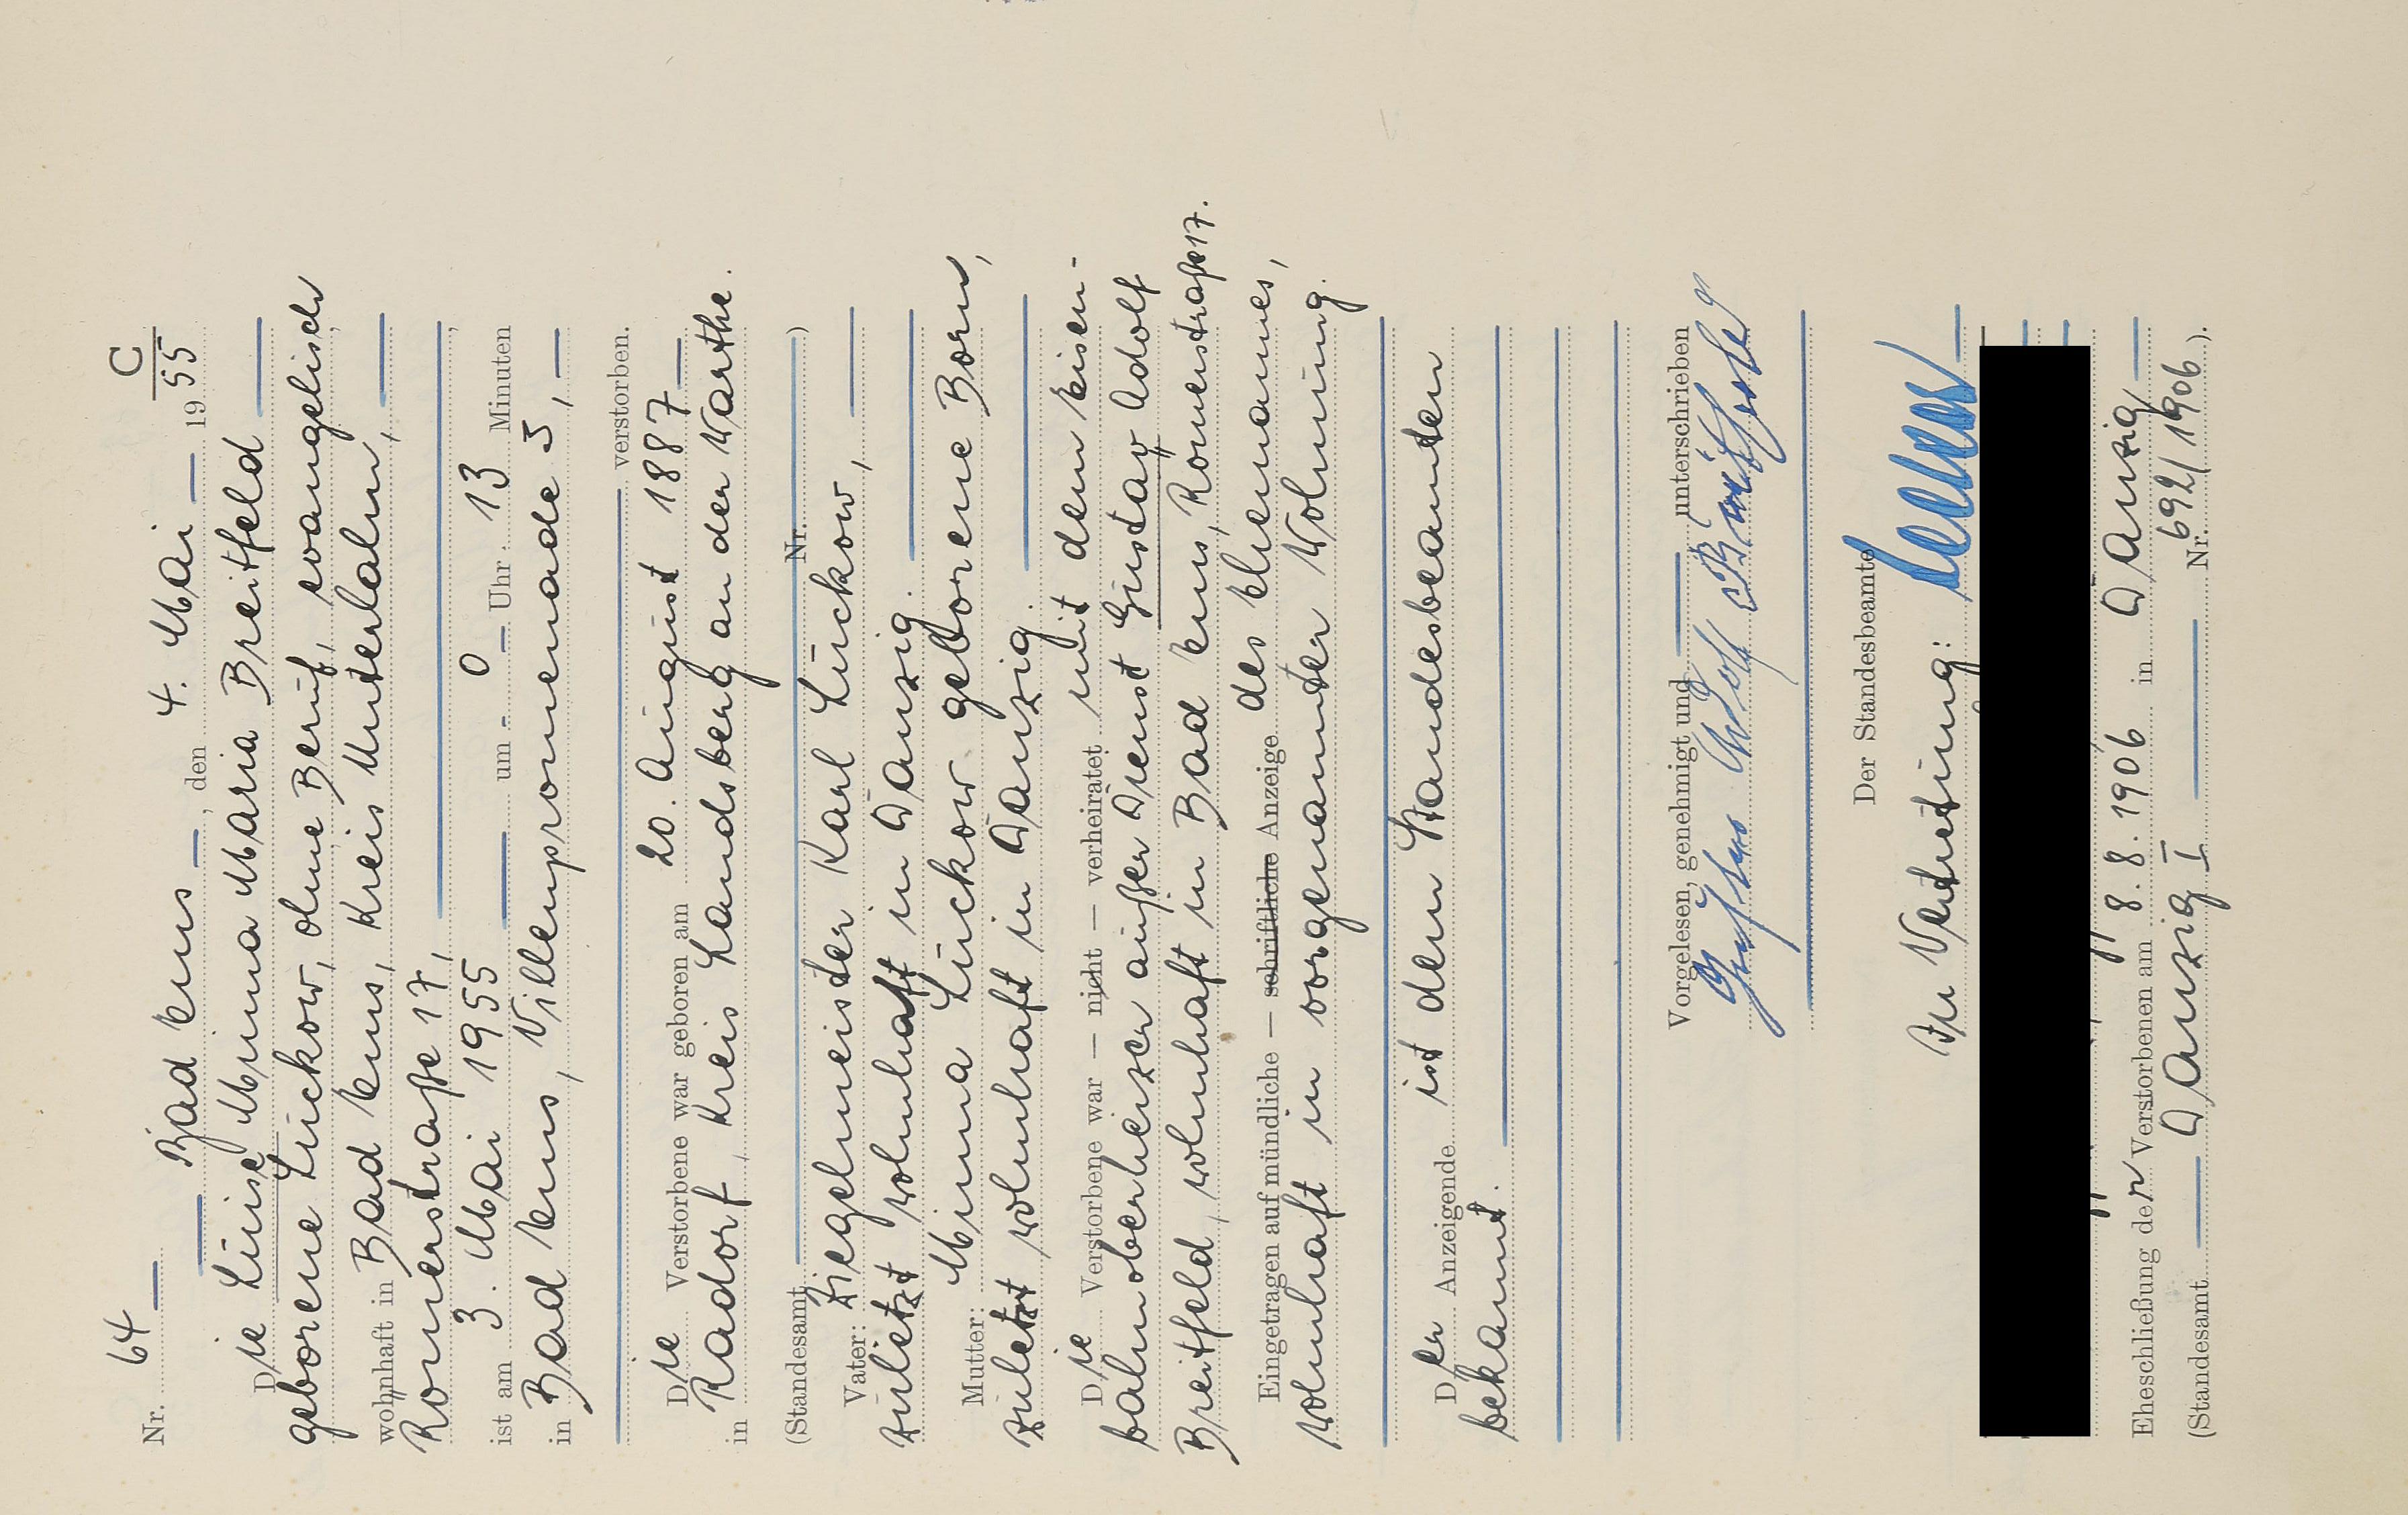 C
Nr. 64
Bad Ems, den 4. Mai 1955
Die Luise Minna Maria Breitfeld
geborene Lückow, ohne Beruf, evangelisch
wohnhaft in Bad Ems, Kreis Unterlahn,
Römerstraße 17,
ist am 3. Mai 1955 um 0 Uhr 13 Minuten
in Bad Ems, Villenpromenade 3,
verstorben.
Die Verstorbene war geboren am 20. August 1887
in Radorf, Kreis Landsberg an der Warthe.
(Standesamt Nr. )
Vater: Ziegelmeister Karl Lückow,
zuletzt wohnhaft in Danzig.
Mutter: Minna Lückow geborene Born,
zuletzt wohnhaft in Danzig.
Die Verstorbene war — nicht — verheiratet mit dem Eisen-
bahnoberheizer außer Dienst Gustav Adolf
Breitfeld, wohnhaft in Bad Ems, Römerstraße 17.
Eingetragen auf mündliche — schriftliche Anzeige des Ehemannes,
wohnhaft in vorgenannter Wohnung.
Der Anzeigende ist dem Standesbeamten
bekannt.
Vorgelesen, genehmigt und unterschrieben
Gustav Adolf Breitfeld
Der Standesbeamte
In Vertretung:
Eheschließung der Verstorbenen am 8. 8. 1906 in Danzig
(Standesamt Danzig I Nr. 692/1906).